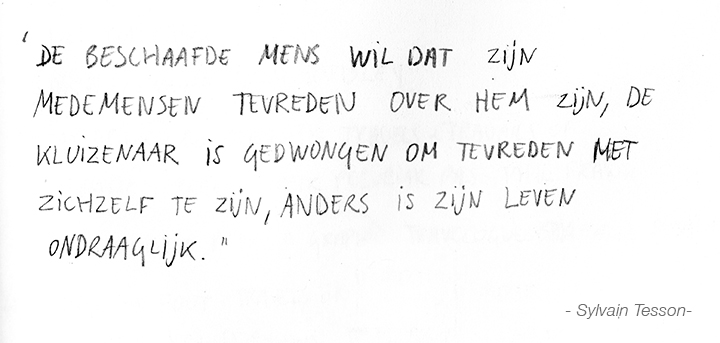 'DE BESCHAAFDE MENS WIL DAT ZIJN
MEDEMENSEN TEVREDEN OVER HEM ZIJN, DE
KLUIZENAAR IS GEDWONGEN OM TEVREDEN MET
ZICHZELF TE ZIJN, ANDERS IS ZIJN LEVEN
ONDRAAGLIJK."
- Sylvain Tesson-